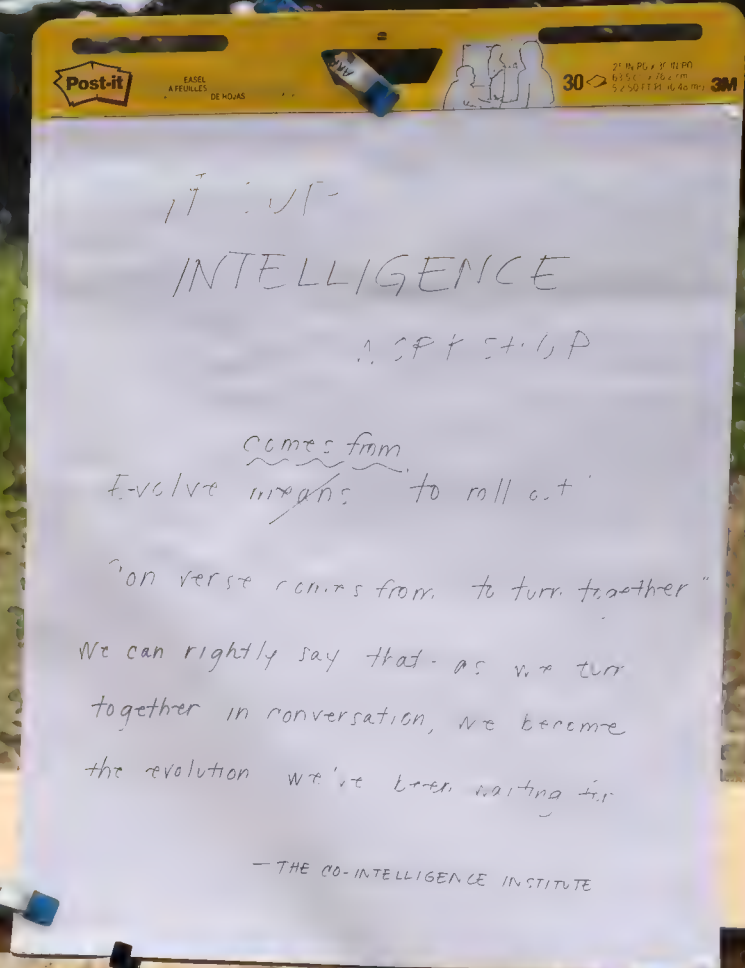 Post-it
EASEL
A FEUILLES
DE HOJAS
30
3M
INTELLIGENCE
comes from
Evolve means to roll out
verse comes from to turn together"
We can rightly say that as we turn
together in conversation, we become
the evolution we've been waiting for
— THE CO-INTELLIGENCE INSTITUTE